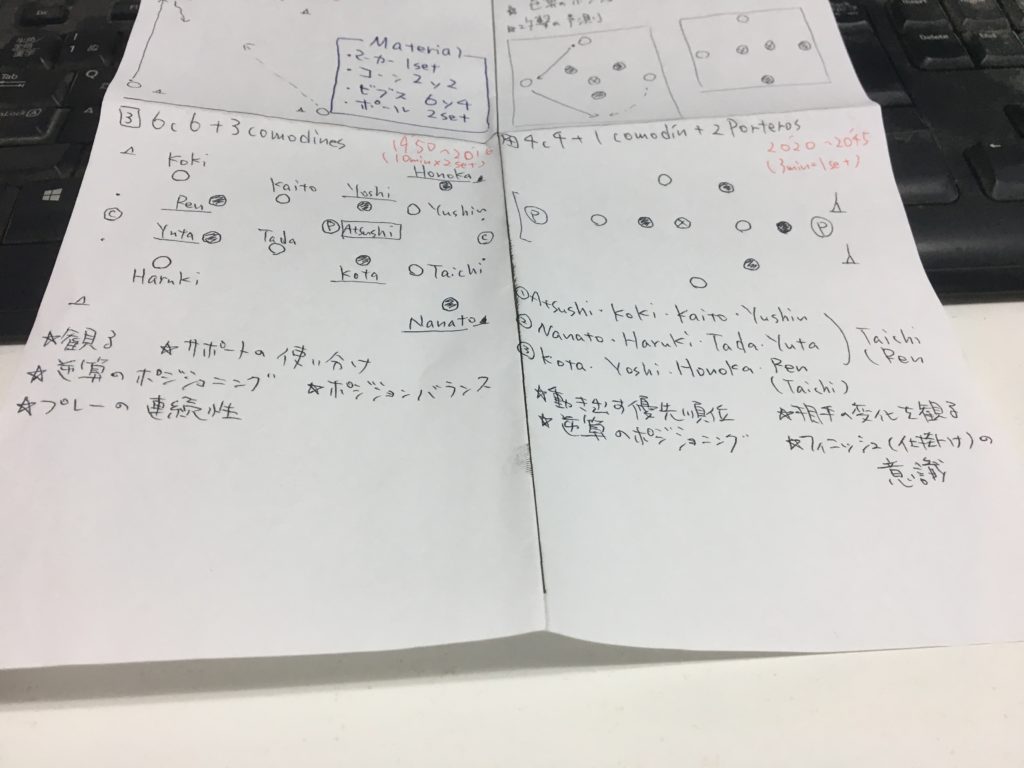 Material
・マーカー 1set
・コーン 2y2
・ビブス 6y4
・ボール 2set
③ 6c6+3comodines
1950~201
(10min×2set)
Koki
Kaito
Yoshi
Honoka
Pen
Yushin
C
Yuta
Tada
P
Atsushi
C
Haruki
Kota
Taichi
Nanato
☆観る
☆サポートの使い分け
☆逆算のポジショニング
☆ポジションバランス
☆プレーの連続性
☆攻撃の予測
4c4+1comodín+2Porteros
2020~2045
(3min=1set)
P
P
①Atsushi・Koki・Kaito・Yushin
②Nanato・Haruki・Tada・Yuta
③Kota・Yoshi・Honoka・Pen
(Taichi)
Taichi
Pen
☆動き出す優先順位
☆相手の変化を観る
☆逆算のポジショニング
☆フィニッシュ(仕掛け)の
意識
Tab
Delete
End